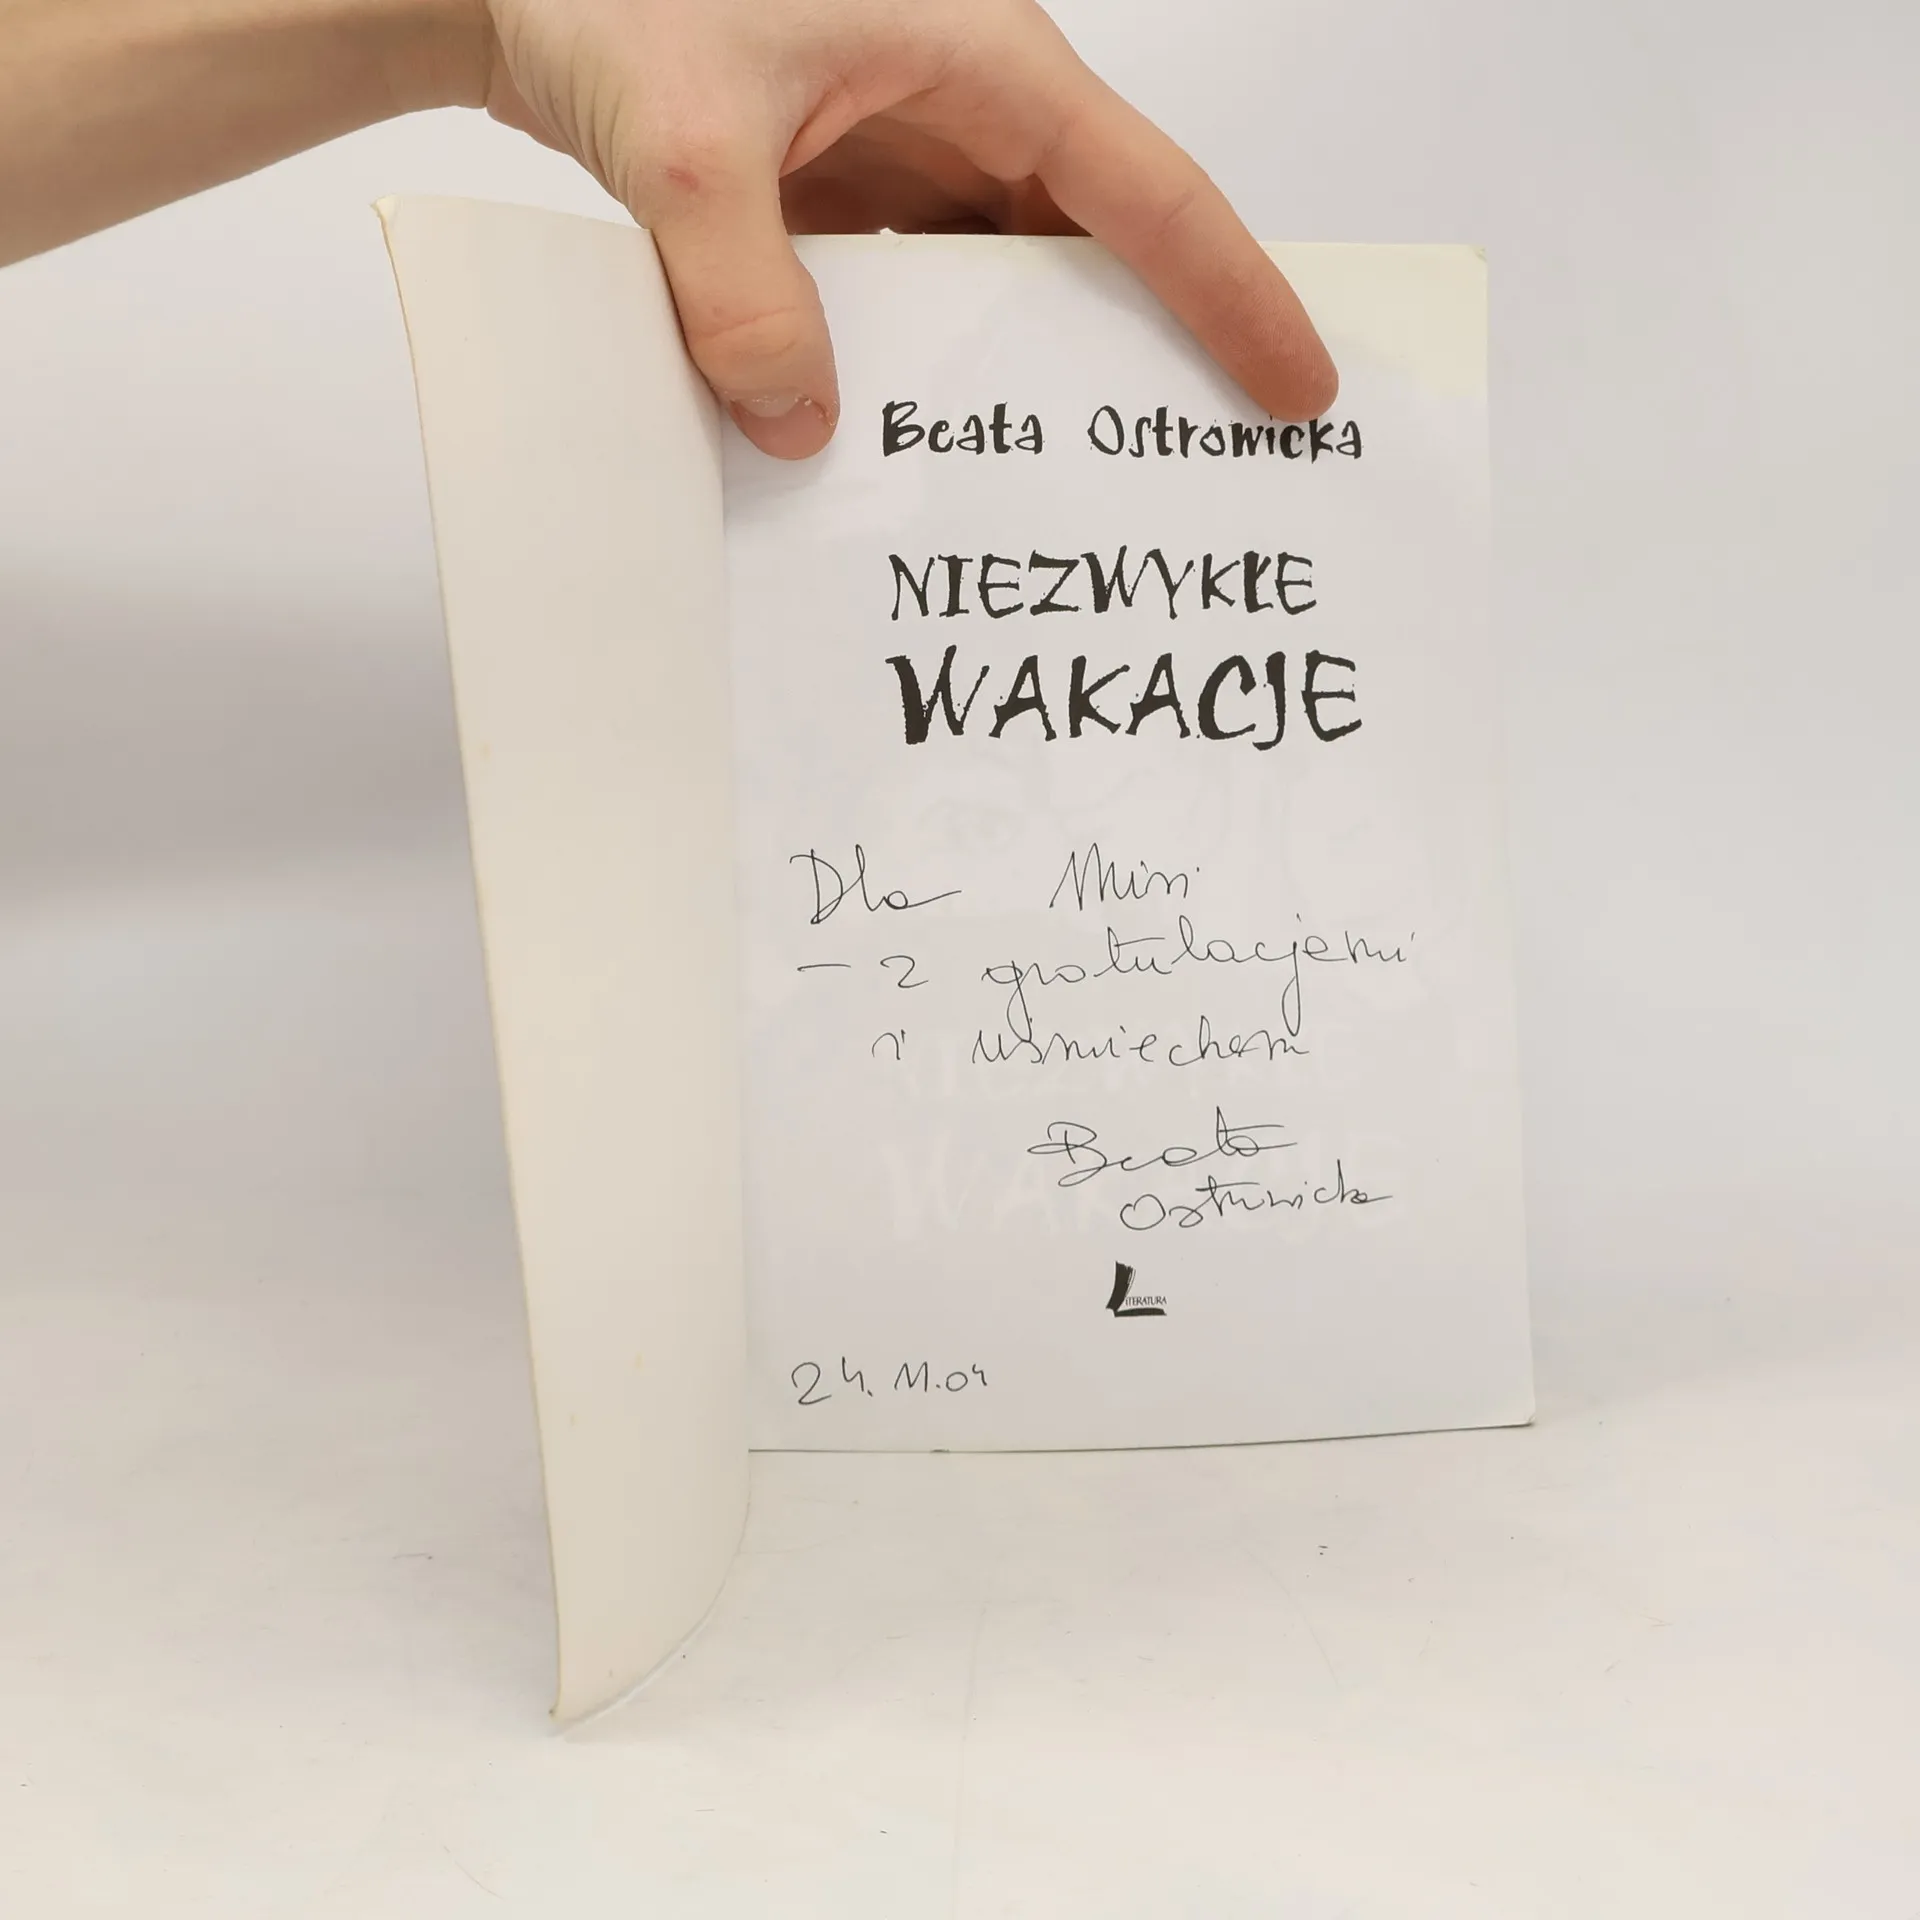 Beata Ostrowicka
NIEZWYKŁE
WAKACJE
Dla
- z gratulacjami
i uśmiechem
Beata
Ostrowicka
LITERATURA
24.11.04